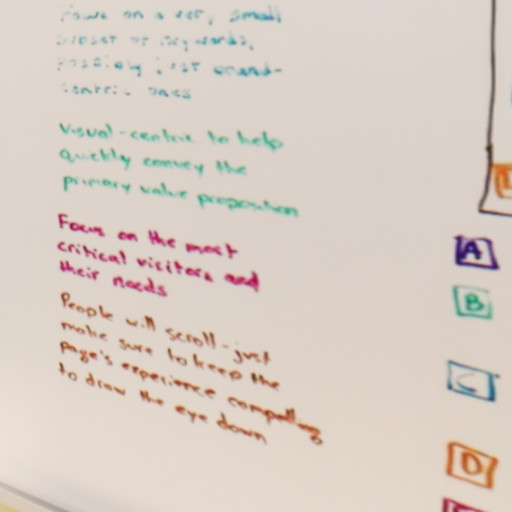 Focus on a very small
subset of keywords,
possibly just brand-
centric ones
Visual-centric to help
quickly convey the
primary value proposition
Focus on the most
critical visitors and
their needs
People will scroll-just
make sure to keep the
page's experience compelling
to draw the eye down
A
B
C
D